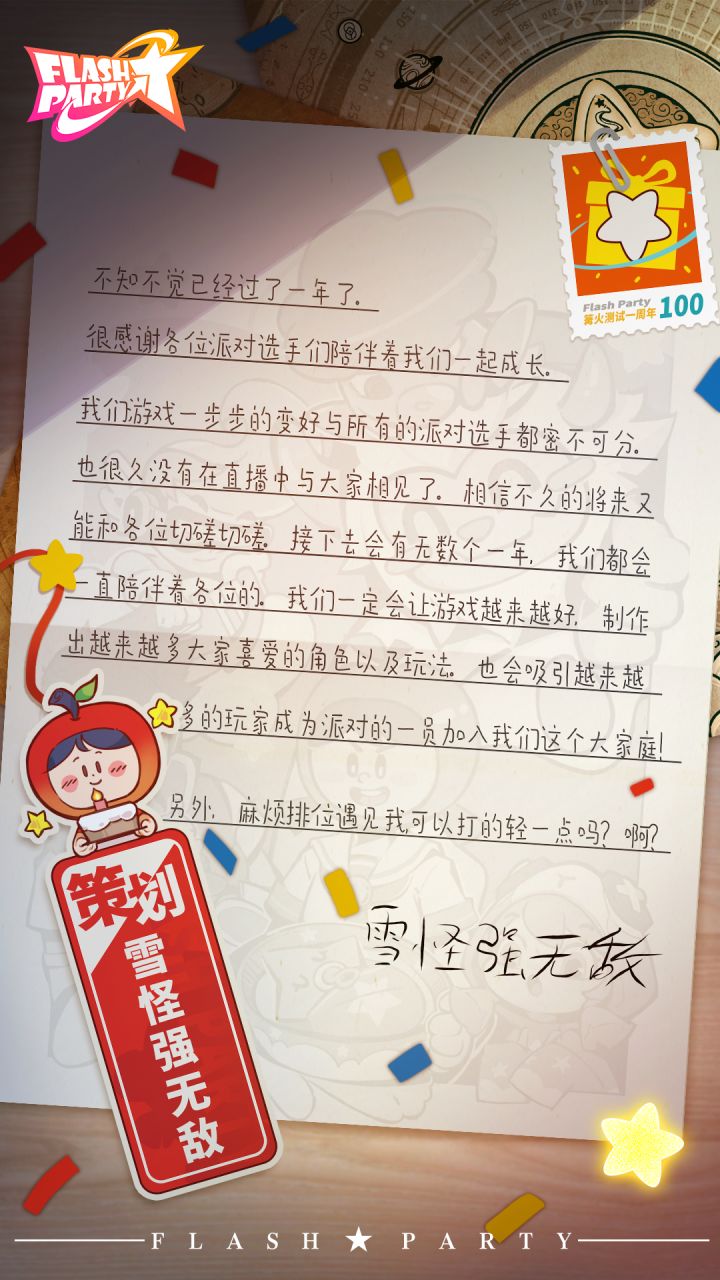 FLASH
PARTY
Flash Party
篝火测试一周年 100
不知不觉已经过了一年了。
很感谢各位派对选手们陪伴着我们一起成长。
我们游戏一步步的变好与所有的派对选手都密不可分。
也很久没有在直播中与大家相见了。相信不久的将来又
能和各位切磋切磋。接下去会有无数个一年,我们都会
一直陪伴着各位的。我们一定会让游戏越来越好,制作
出越来越多大家喜爱的角色以及玩法。也会吸引越来越
多的玩家成为派对的一员加入我们这个大家庭!
另外,麻烦排位遇见我,可以打的轻一点吗?啊?
雪怪强无敌
策划
雪怪强无敌
FLASH★PARTY